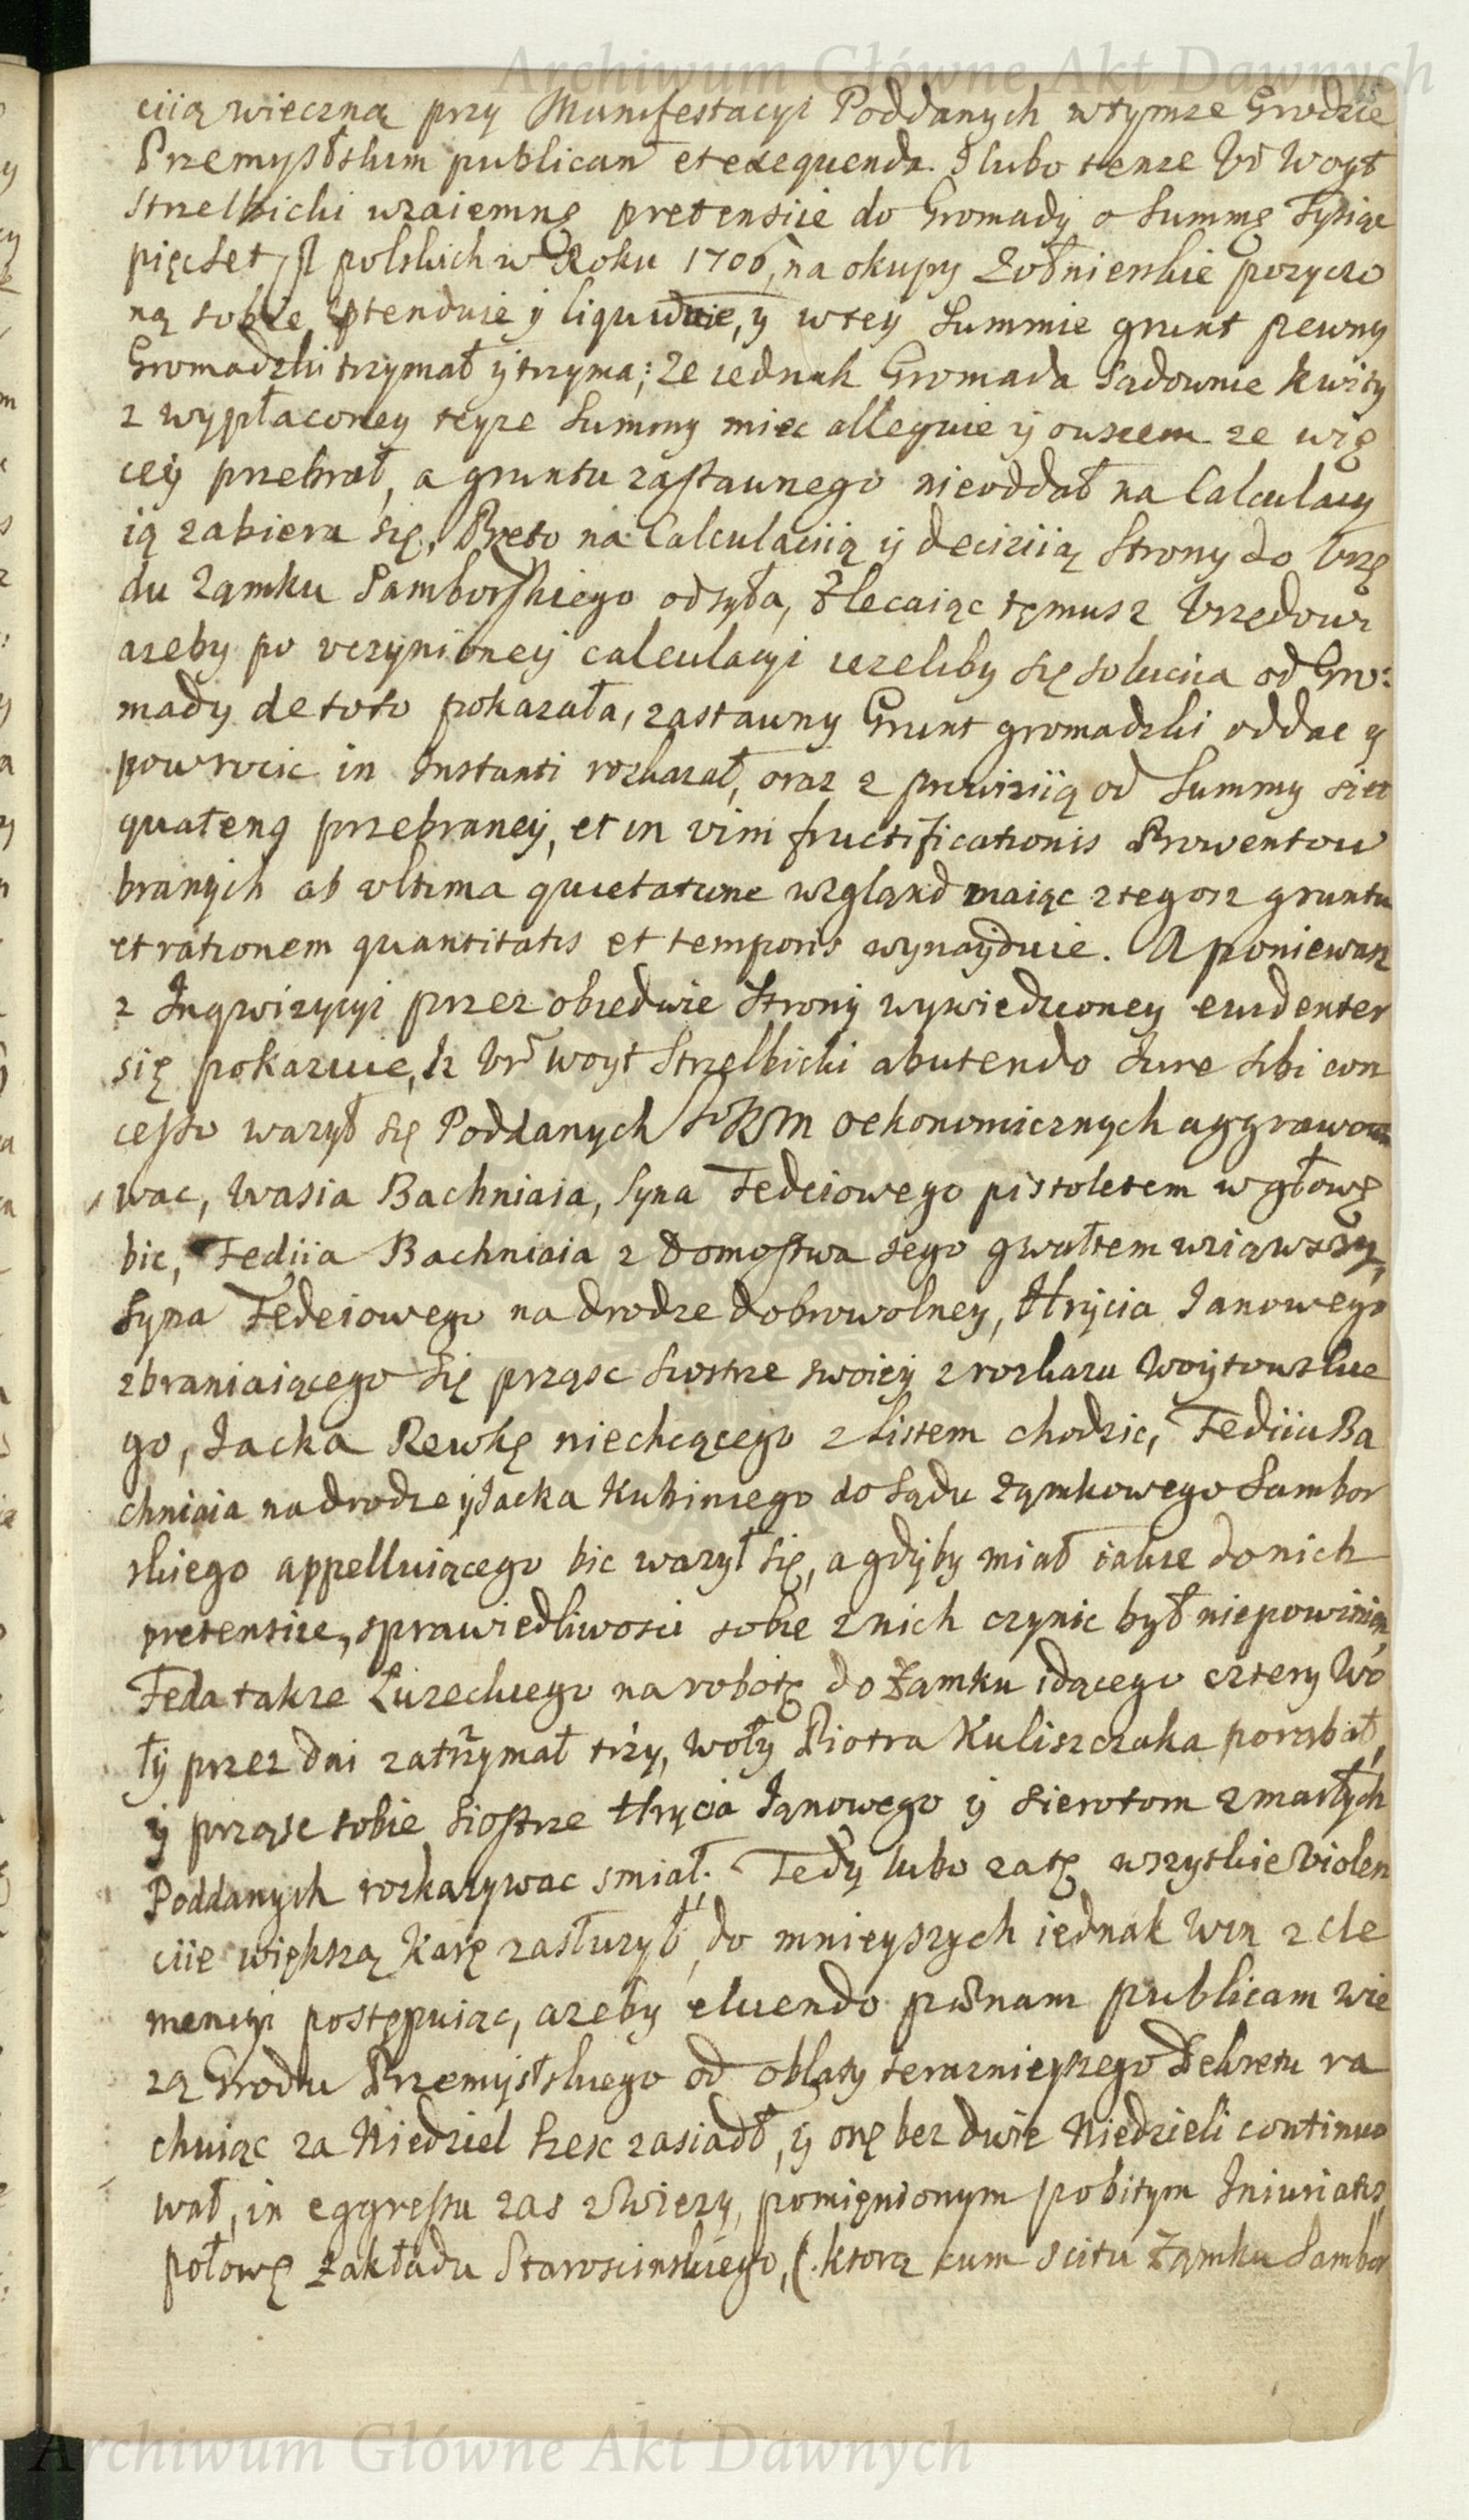 Archiwum Główne Akt Dawnych
ciią wieczną przy Manifestacyi Poddanych wtymze Grodzie
Przemysłskim publican et exequendą. I lubo tenze Ur Woyt
Strzelbicki wzaiemnę pretensiie do Gromady o Summę Tysiąc
pięcset zł polskich w Roku 1706, na okupy Zołnierskie pozyczo
ną sobie ptenduie ÿ liquiduie, ÿ wtey Summie grunt pewny
Gromadzki trzymał ÿ trzyma; Ze iednak Gromada Sądownie kwity
z wypłaconey teyze Summy miec alleguie ÿ owszem ze wię
ceÿ przebrał, a gruntu zastawnego nieoddał na Calculacy
ią zabiera się, Przeto na Calculaciią ÿ deciziią Strony do Urzę
du Zamku Samborskiego odsyła, Zlecaiąc tęmusz Urzędowi
azeby po uczynioney calculacyi iezeliby się soluciia od Gro:
mady de toto pokazała, zastawny Grunt gromadzki oddac ÿ
powrocic in Instanti rozkazał, oraz z prowiziią od Summy si et
quateng przebraneÿ, et in vim fructificationis Prowentow
branÿch ab ultima quietatione wzgląnd maiąc ztegosz gruntu
et rationem quantitatis et temporis wynaÿduie. A poniewasz
z Inqwizycyi przez obiedwie Strony wywiedzioney evidenter
się pokazuie, iz Ur Woyt Strzelbicki abutendo Iure sibi con
cesso wazył się Poddanych JKM oekonomicznych aggrawow
wac, Wasia Bachniaia, Syna Fedciowego pistoletem w głowę
bic, Fediia Bachniaia z domostwa iego gwałtem wziąwszy,
Syna Fedciowego na drodze dobrowolney, Hrÿcia Ianowego
zbraniaiącego się prząsc Siostrze swoieÿ z rozkazu Woÿtowskie
go, Iacka Rewkę niechcącego z listem chodzic, Fediia Ba
chniaia na drodze ÿ Iacka Kubiniego do Sądu Zamkowego Sambor
skiego appelluiącego bic wazył się, a gdÿby miał iakie do nich
pretensiie, sprawiedliwosci sobie z nich czynic był niepowinien,
Feda takze Łuzeckiego na robotę do Zamku idącego cztery Wo
łÿ przez dni zatrzymał trzy, woły Piotra Kuliszczaka porąbał,
ÿ prząsc sobie Siostrze Hrycia Ianowego ÿ Sierotom zmarłÿch
Poddanych rozkazywac smiał. Tedy lubo zatę wszytkie Violen
ciie większą Karę zasłuzył, do mnieyszych iednak Win z cle
mencyi postępuiąc, azeby eluendo pœnam publicam wie
zą Grodu Przemysłskiego od oblaty terazniejszego Dekretu ra
chuiąc za Niedziel Szesc zasiadł, ÿ onę bez dwie Niedzieli continuo
wał, in eggressu zas z Wiezy, pomięnionym pobitym Iniuriatis,
połowę Zakładu Staroscinskiego, (. ktorą cum scitu Zamku Sambor
Archiwum Główne Akt Dawnych